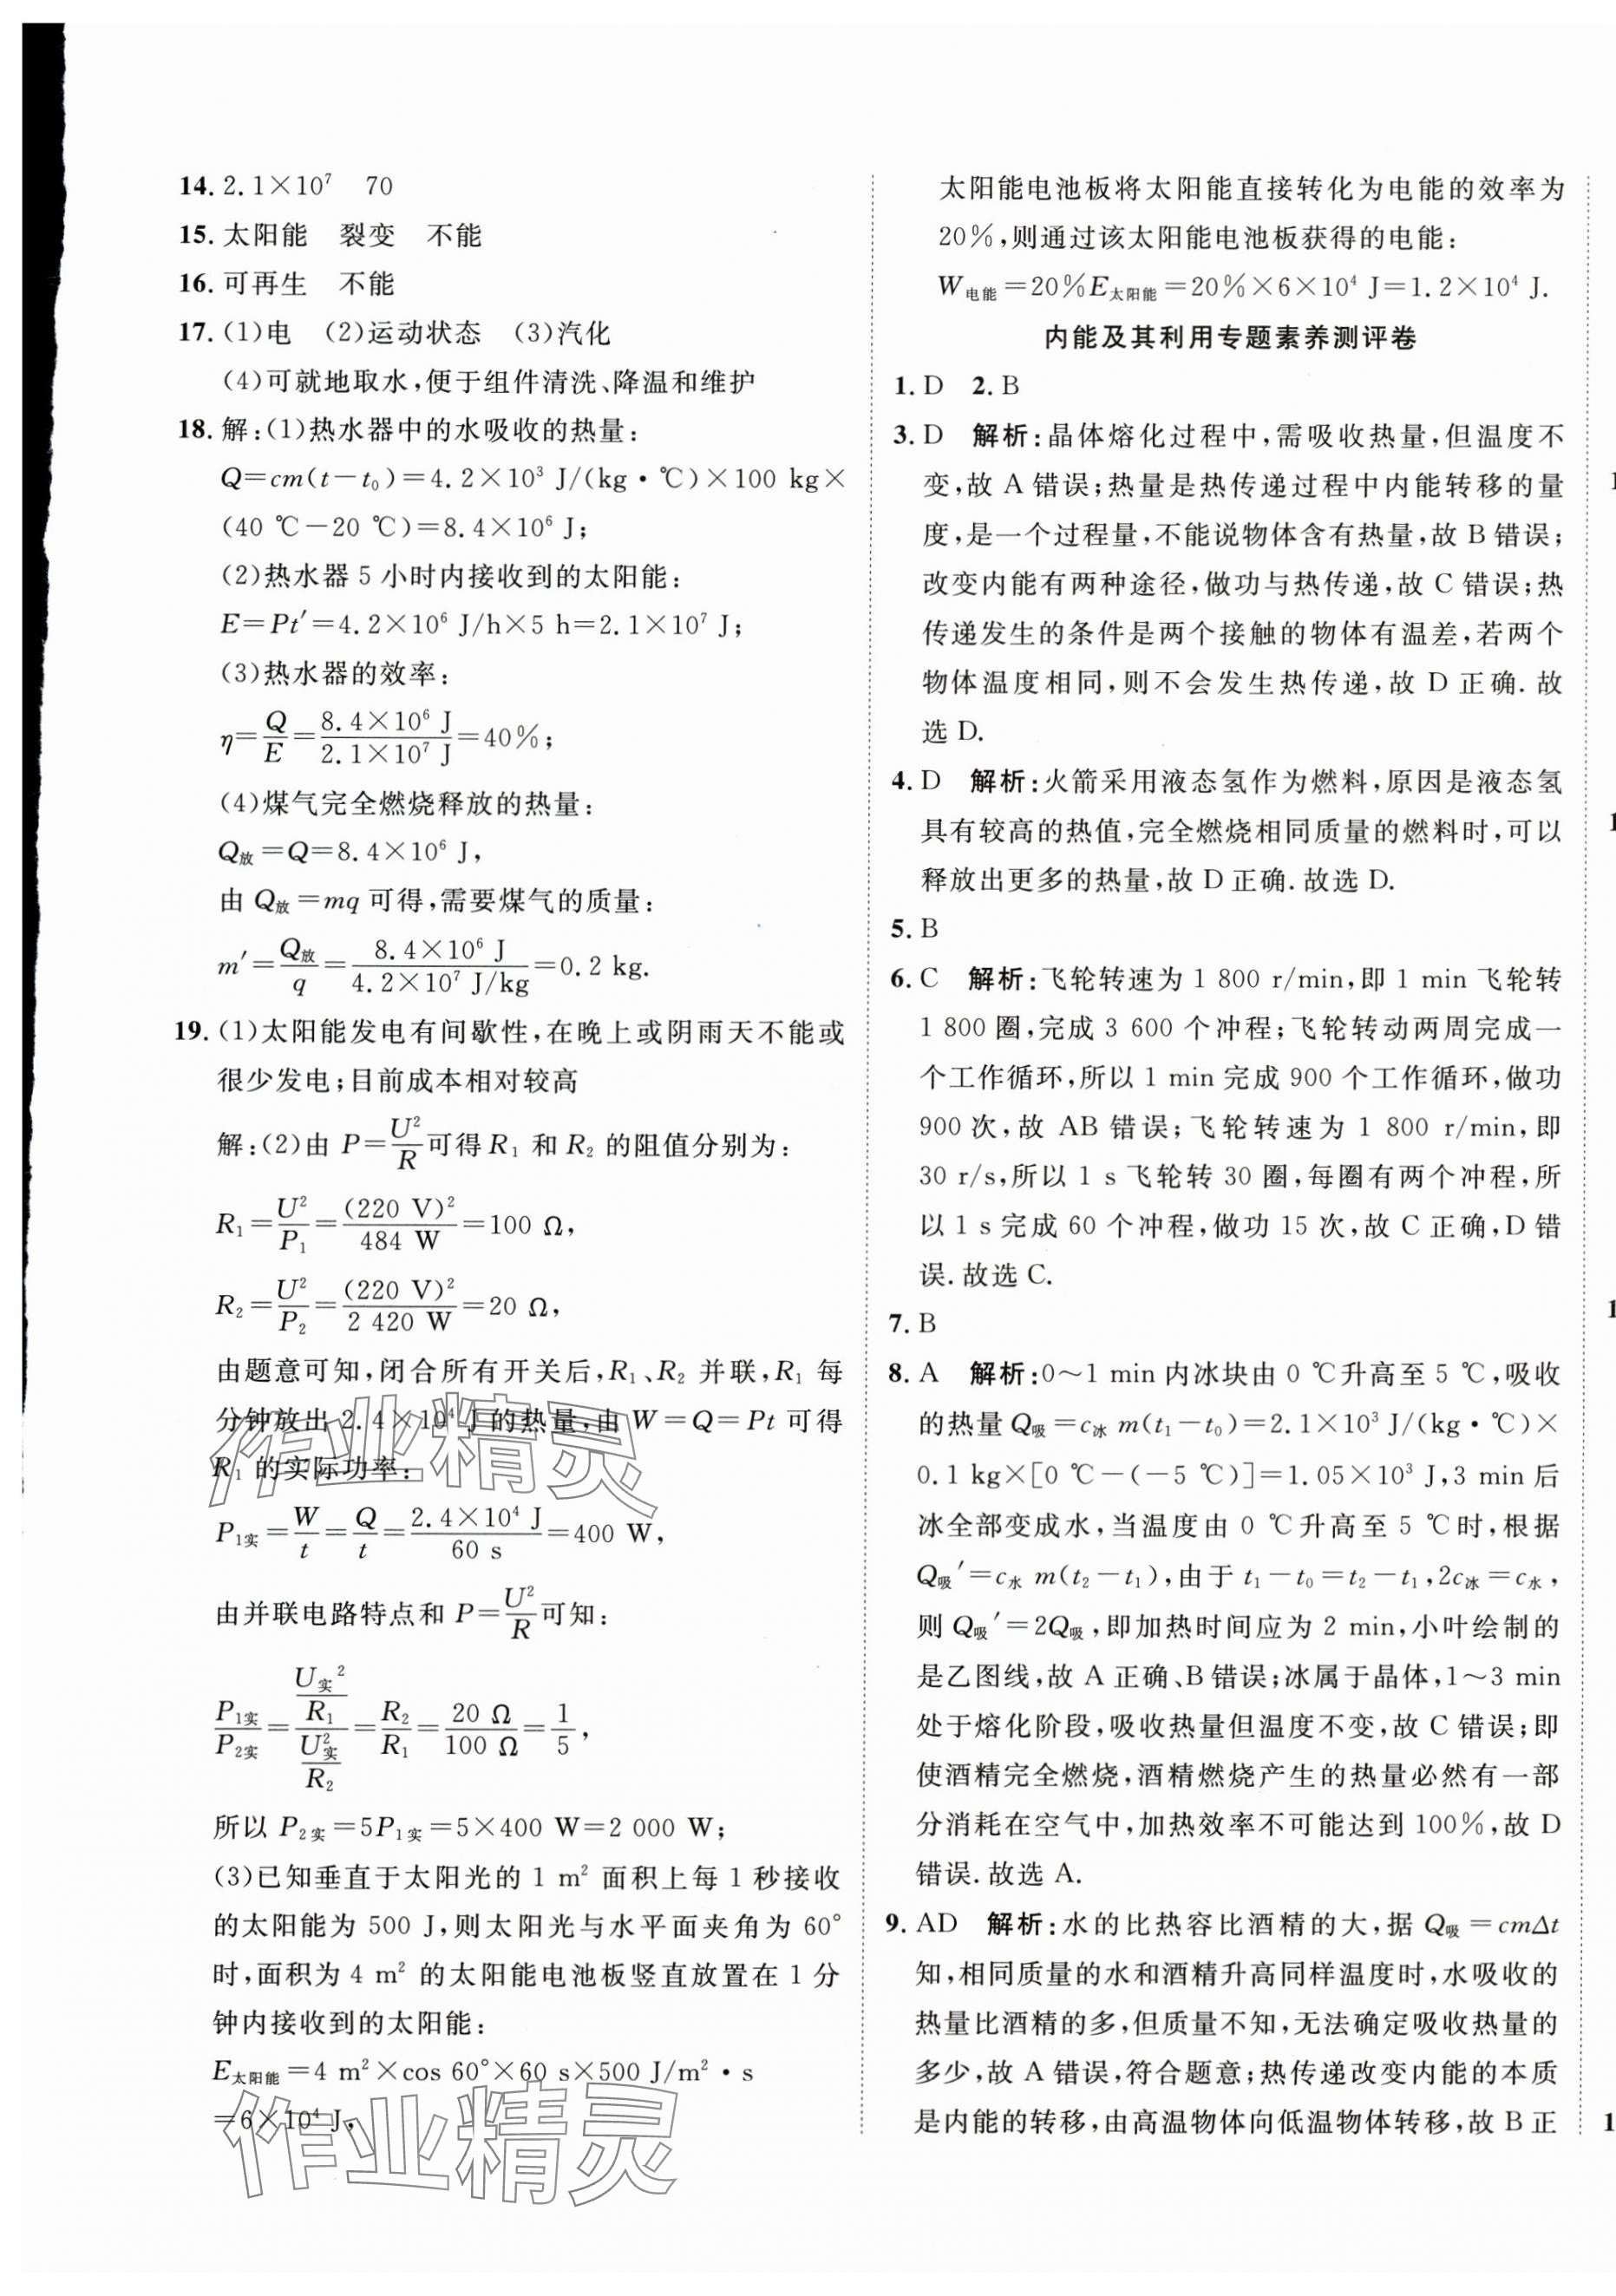 14. 2.1×10⁷　70
15. 太阳能　裂变　不能
16. 可再生　不能
17. (1)电　(2)运动状态　(3)汽化
(4)可就地取水,便于组件清洗、降温和维护
18. 解:(1)热水器中的水吸收的热量:
Q=cm(t-t₀)=4.2×10³ J/(kg·℃)×100 kg×
(40 ℃-20 ℃)=8.4×10⁶ J;
(2)热水器 5 小时内接收到的太阳能:
E=Pt′=4.2×10⁶ J/h×5 h=2.1×10⁷ J;
(3)热水器的效率:
η=Q/E=8.4×10⁶ J/2.1×10⁷ J=40%;
(4)煤气完全燃烧释放的热量:
Q放=Q=8.4×10⁶ J,
由 Q放=mq 可得,需要煤气的质量:
m′=Q放/q=8.4×10⁶ J/4.2×10⁷ J/kg=0.2 kg.
19. (1)太阳能发电有间歇性,在晚上或阴雨天不能或
很少发电;目前成本相对较高
解:(2)由 P=U²/R可得 R₁ 和 R₂ 的阻值分别为:
R₁=U²/P₁=(220 V)²/484 W=100 Ω,
R₂=U²/P₂=(220 V)²/2 420 W=20 Ω,
由题意可知,闭合所有开关后,R₁、R₂ 并联,R₁ 每
分钟放出 2.4×10⁴ J 的热量,由 W=Q=Pt 可得
R₁ 的实际功率:
P₁实=W/t=Q/t=2.4×10⁴ J/60 s=400 W,
由并联电路特点和 P=U²/R可知:
P₁实/P₂实=(U实²/R₁)/(U实²/R₂)=R₂/R₁=20 Ω/100 Ω=1/5,
所以 P₂实=5P₁实=5×400 W=2 000 W;
(3)已知垂直于太阳光的 1 m² 面积上每 1 秒接收
的太阳能为 500 J,则太阳光与水平面夹角为 60°
时,面积为 4 m² 的太阳能电池板竖直放置在 1 分
钟内接收到的太阳能:
E太阳能=4 m²×cos 60°×60 s×500 J/m²·s
=6×10⁴ J,
太阳能电池板将太阳能直接转化为电能的效率为
20%,则通过该太阳能电池板获得的电能:
W电能=20%E太阳能=20%×6×10⁴ J=1.2×10⁴ J.
内能及其利用专题素养测评卷
1. D　2. B
3. D　解析:晶体熔化过程中,需吸收热量,但温度不
变,故 A 错误;热量是热传递过程中内能转移的量
度,是一个过程量,不能说物体含有热量,故 B 错误;
改变内能有两种途径,做功与热传递,故 C 错误;热
传递发生的条件是两个接触的物体有温差,若两个
物体温度相同,则不会发生热传递,故 D 正确.故
选 D.
4. D　解析:火箭采用液态氢作为燃料,原因是液态氢
具有较高的热值,完全燃烧相同质量的燃料时,可以
释放出更多的热量,故 D 正确.故选 D.
5. B
6. C　解析:飞轮转速为 1 800 r/min,即 1 min 飞轮转
1 800 圈,完成 3 600 个冲程;飞轮转动两周完成一
个工作循环,所以 1 min 完成 900 个工作循环,做功
900 次,故 AB 错误;飞轮转速为 1 800 r/min,即
30 r/s,所以 1 s 飞轮转 30 圈,每圈有两个冲程,所
以 1 s 完成 60 个冲程,做功 15 次,故 C 正确,D 错
误.故选 C.
7. B
8. A　解析:0~1 min 内冰块由 0 ℃升高至 5 ℃,吸收
的热量 Q吸=c冰 m(t₁-t₀)=2.1×10³ J/(kg·℃)×
0.1 kg×[0 ℃-(-5 ℃)]=1.05×10³ J,3 min 后
冰全部变成水,当温度由 0 ℃升高至 5 ℃时,根据
Q吸′=c水 m(t₂-t₁),由于 t₁-t₀=t₂-t₁,2c冰=c水,
则 Q吸′=2Q吸,即加热时间应为 2 min,小叶绘制的
是乙图线,故 A 正确、B 错误;冰属于晶体,1~3 min
处于熔化阶段,吸收热量但温度不变,故 C 错误;即
使酒精完全燃烧,酒精燃烧产生的热量必然有一部
分消耗在空气中,加热效率不可能达到 100%,故 D
错误.故选 A.
9. AD　解析:水的比热容比酒精的大,据 Q吸=cmΔt
知,相同质量的水和酒精升高同样温度时,水吸收的
热量比酒精的多,但质量不知,无法确定吸收热量的
多少,故 A 错误,符合题意;热传递改变内能的本质
是内能的转移,由高温物体向低温物体转移,故 B 正
作业精灵
作业精灵